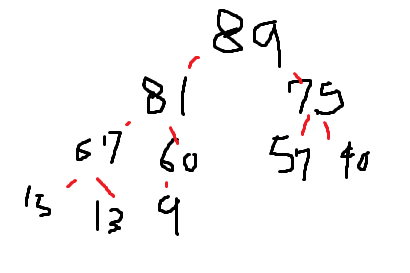 89
81 75
67 60 57 40
15 13 9